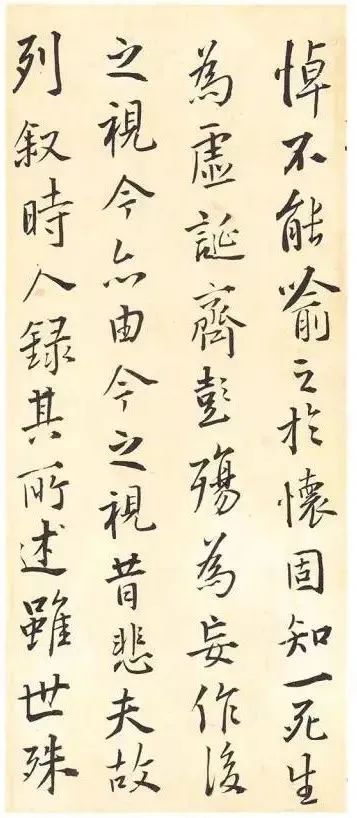 悼不能喻之於懷固知一死生
為虛誕齊彭殤為妄作後
之視今亦由今之視昔悲夫故
列叙時人録其所述雖世殊